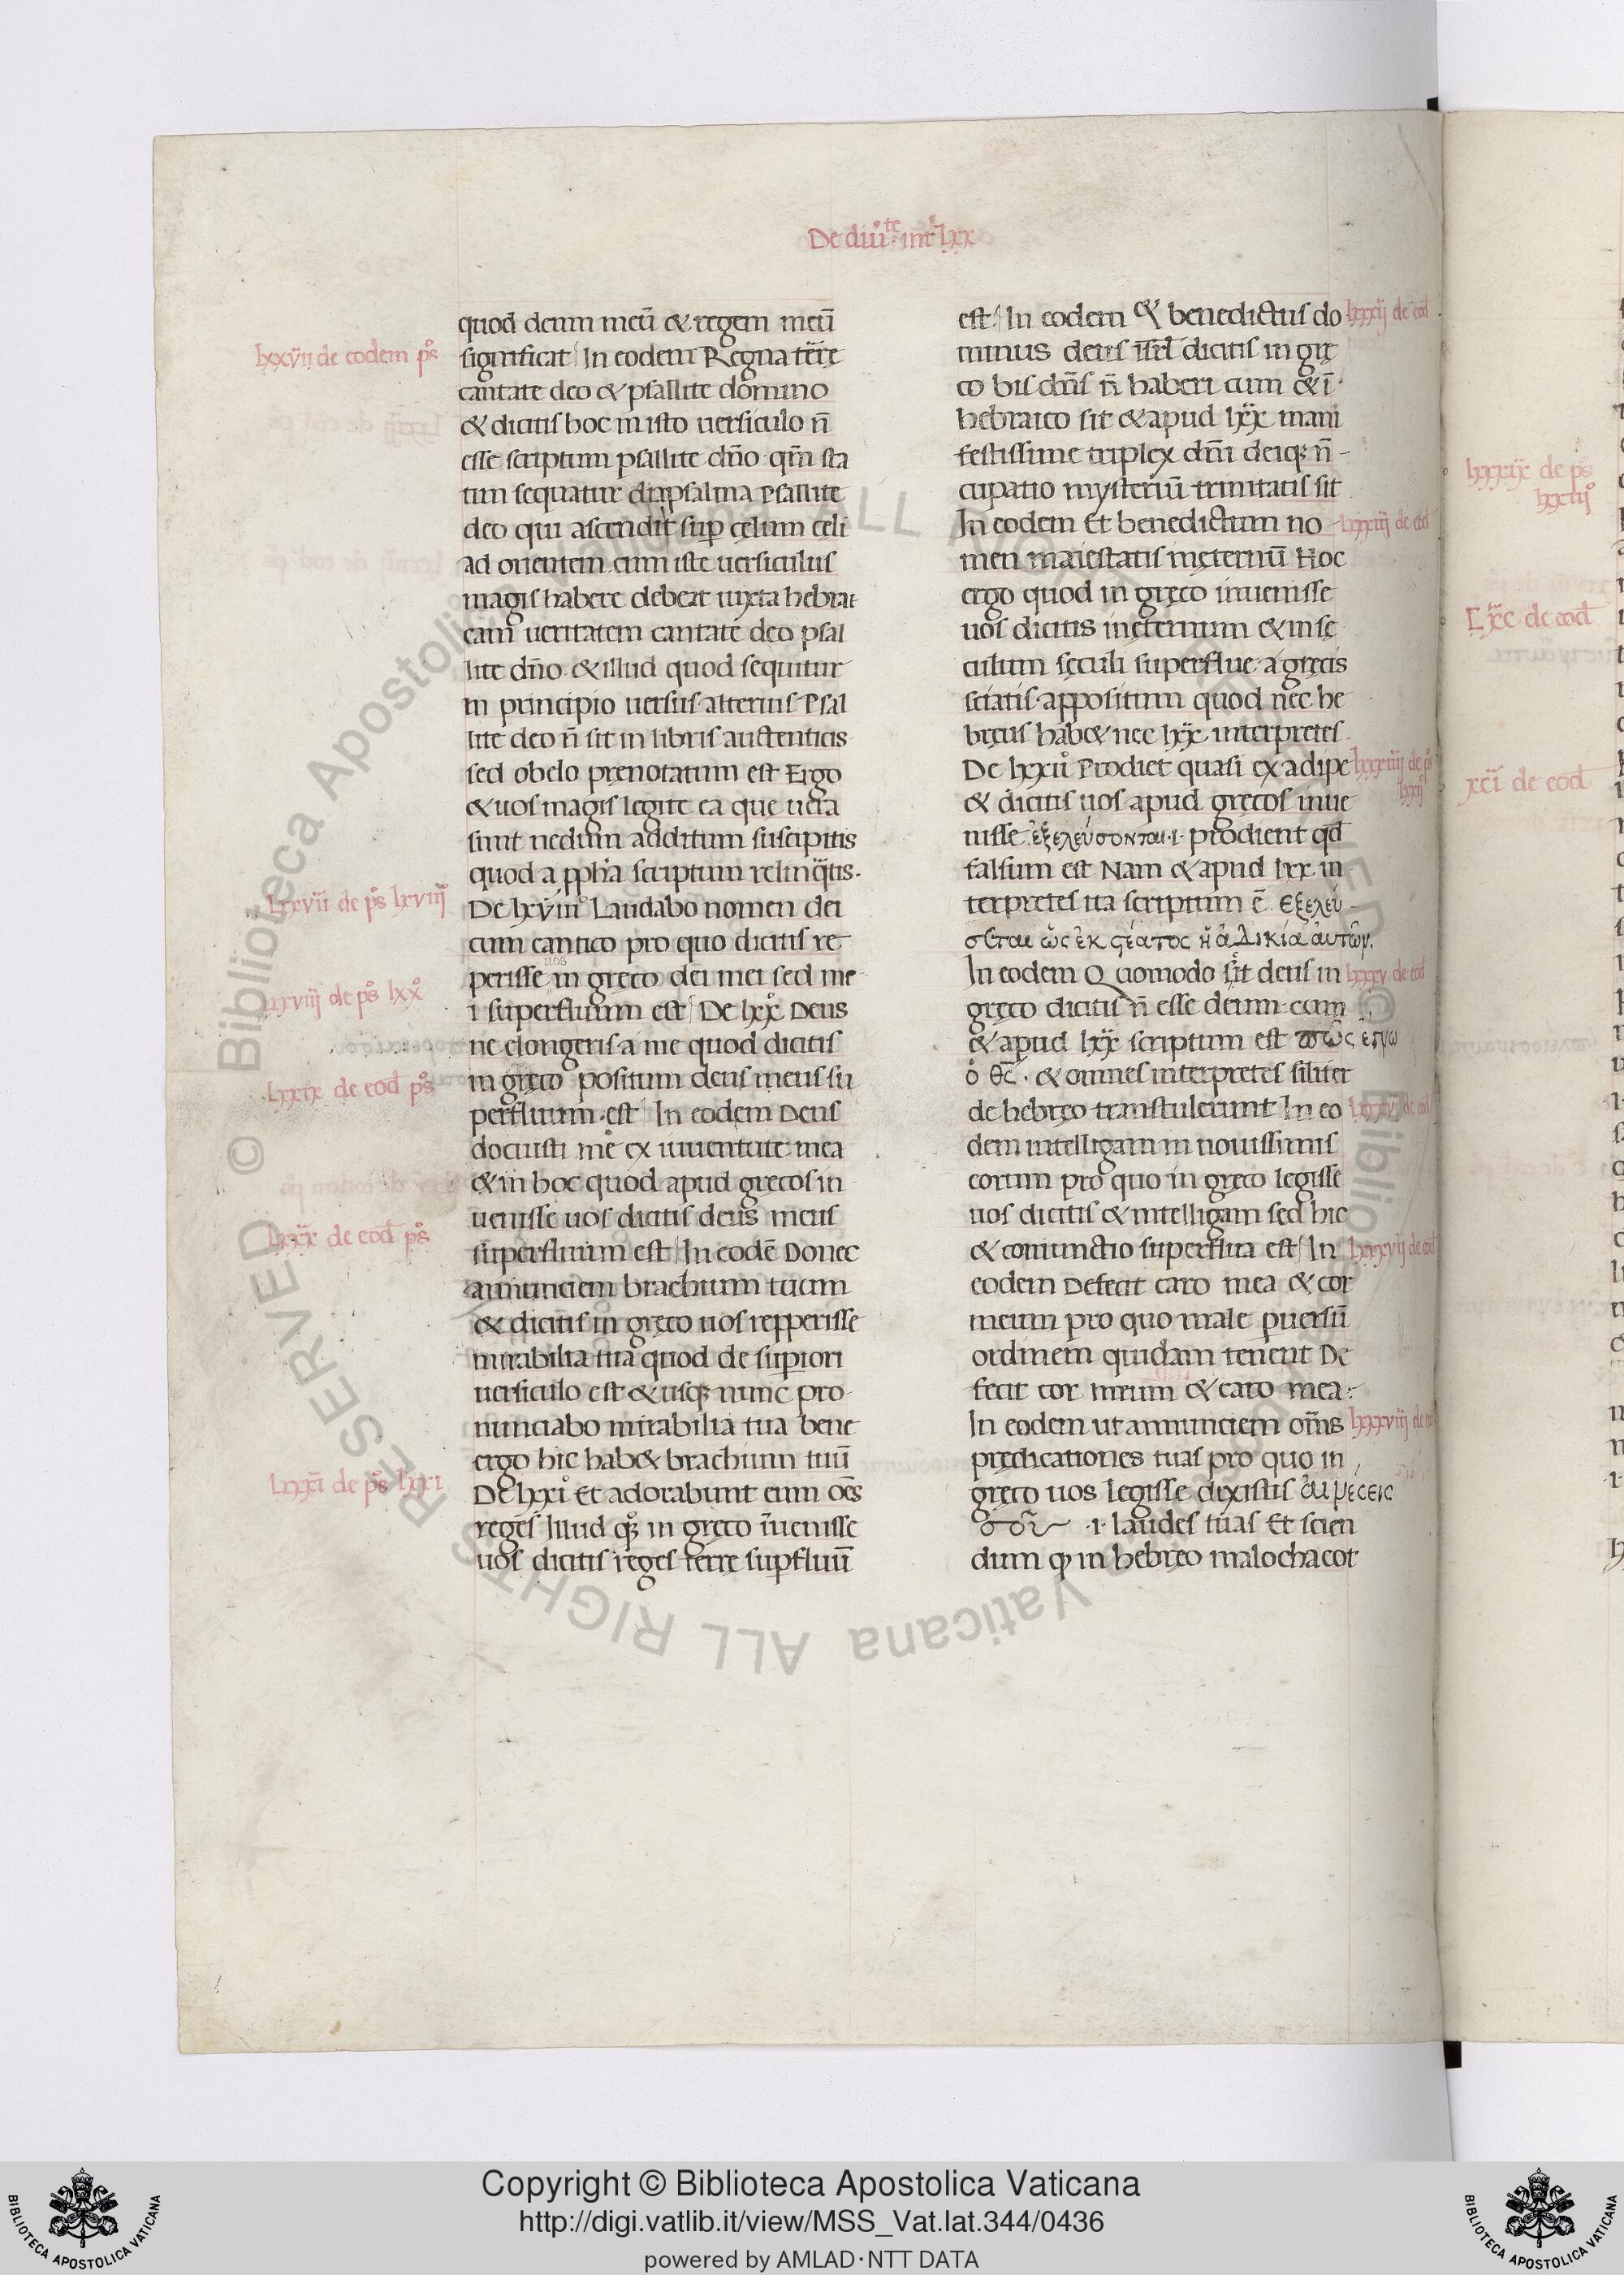 De diũ^te int^e lxx
quod deum meũ & regem meũ
significat In eodem Regna terrę
cantate deo & psallite domino
& dicitis hoc in isto uersiculo ñ
esse scriptum psallite dño qm̃ sta
tim sequatur diapsalma Psallite
deo qui ascendit sup cęlum cęli
ad orientem cum iste uersiculus
magis habere debeat iuxta hebrai
cam ueritatem cantate deo psal
lite dño & illud quod sequitur
in principio uersus alterius Psal
lite deo ñ sit in libris auctenticis
sed obelo prenotatum est Ergo
& uos magis legite ea que uera
sunt nedum additum suscipitis
quod a ppha scriptum relinqtis.
De lxviii° Laudabo nomen dei
cum cantico pro quo dicitis re
perisse uos in gręco dei mei sed me
i superfluum est De lxx° Deus
ne elongeris a me quod dicitis
in gręco positum deus meus su
perfluum est In eodem Deus
docuisti me ex iuuentute mea
& in hoc quod apud gręcos in
uenisse uos dicitis deus meus
superfluum est In eodẽ Donec
annunciem brachium tuum
& dicitis in gręco uos repperisse
mirabilia tua quod de supiori
uersiculo est & usq; nunc pro
nunciabo mirabilia tua bene
ergo hic hab& brachium tuũ
De lxxi° Et adorabunt eum oẽs
reges Illud q° in gręco ĩuenisse
uos dicitis reges terrę supfluũ
lxxvii de eodem ps°
lxxvii de ps° lxviii°
lxxviij de ps° lxx°
lxxix de eod ps°
lxxx de eod ps°
lxxxi de ps° lxxi
est In eodem & benedictus do
minus deus isrl dicitis in grę
co bis dñs ñ haberi cum & ĩ
hebraico sit & apud lxx mani
festissime triplex dñi deiq; ñ
cupatio mysteriũ trinitatis sit
In eodem Et benedictum no
men maiestatis in ęternũ Hoc
ergo quod in gręco inuenisse
uos dicitis in ęternum & in sę
culum sęculi superflue a gręcis
sciatis appositum quod nec he
bręus hab& nec lxx interpretes
De lxxii° Prodiet quasi ex adipe
& dicitis uos apud gręcos inue
nisse ἐξελεύσονται .i. prodient qd
falsum est Nam & apud lxx in
terpretes ita scriptum ẽ Ἐξελεύ
σεται ὡς ἐκ στέατος ἡ ἀδικία αὐτῶν.
In eodem Quomodo scit deus in
gręco dicitis ñ esse deum cum
& apud lxx scriptum est πῶς ἔγνω
ὁ θς̄ . & omnes interpretes siliter
de hebręo transtulerunt In eo
dem intelligam in nouissimis
eorum pro quo in gręco legisse
uos dicitis & intelligam sed hic
& coniunctio superflua est In
eodem Defecit caro mea & cor
meum pro quo male puersũ
ordinem quidam tenent De
fecit cor meum & caro mea
In eodem ut annunciem om̃s
prędicationes tuas pro quo in
gręco uos legisse dixistis αἰνέσεις
σου .i. laudes tuas Et scien
dum q in hebręo malochacot
lxxxij de eod
lxxxiij de eod
lxxxiiij de ps°
lxxij°
lxxxv de eod
lxxxvi de eod
lxxxvij de eod
lxxxviij de eod
lxxxix de ps°
lxxiij°
xc de eod
xci de eod
© Biblioteca Apostolica Vaticana ALL RIGHTS RESERVED
Copyright © Biblioteca Apostolica Vaticana
http://digi.vatlib.it/view/MSS_Vat.lat.344/0436
powered by AMLAD·NTT DATA
BIBLIOTECA APOSTOLICA VATICANA
BIBLIOTECA APOSTOLICA VATICANA